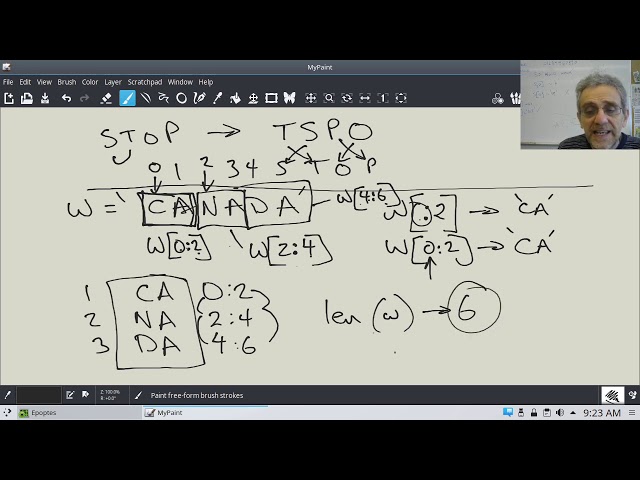 MyPaint
File Edit View Brush Color Layer Scratchpad Window Help
STOP → TSPO
0 1 2 3 4 5 T O P
w = 'CANADA' w[4:6] w[:2] → 'CA'
w[0:2] w[2:4] w[0:2] → 'CA'
1 CA 0:2
2 NA 2:4 len(w) → 6
3 DA 4:6
Z: 100.0%
R: +0.0°
Paint free-form brush strokes
Epoptes MyPaint 9:23 AM